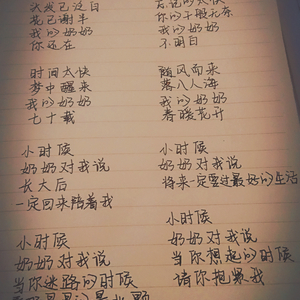 我发已泛白
花已谢半
我的奶奶
你还在
时间太快
梦中醒来
我的奶奶
七十载
小时候
奶奶对我说
长大后
一定回来陪着我
小时候
奶奶对我说
当你迷路的时候
你的千般无奈
我的奶奶
不明白
随风而来
落入人海
我的奶奶
春暖花开
小时候
奶奶对我说
将来一定要过最好的生活
小时候
奶奶对我说
当你想起的时候
请你抱紧我